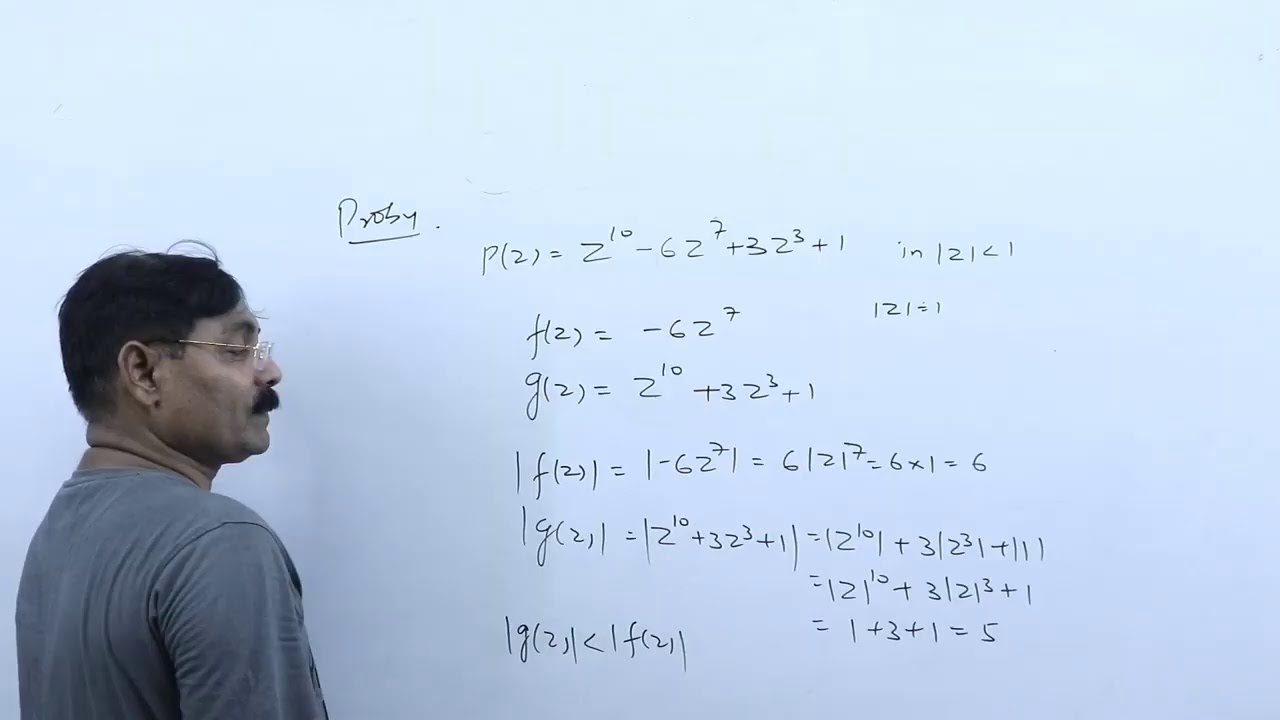 Prob4.
P(z) = z¹⁰ - 6z⁷ + 3z³ + 1 in |z| < 1
|z| = 1
f(z) = -6z⁷
g(z) = z¹⁰ + 3z³ + 1
|f(z)| = |-6z⁷| = 6|z|⁷ = 6×1 = 6
|g(z)| = |z¹⁰ + 3z³ + 1| = |z¹⁰| + 3|z³| + |1|
= |z|¹⁰ + 3|z|³ + 1
= 1 + 3 + 1 = 5
|g(z)| < |f(z)|